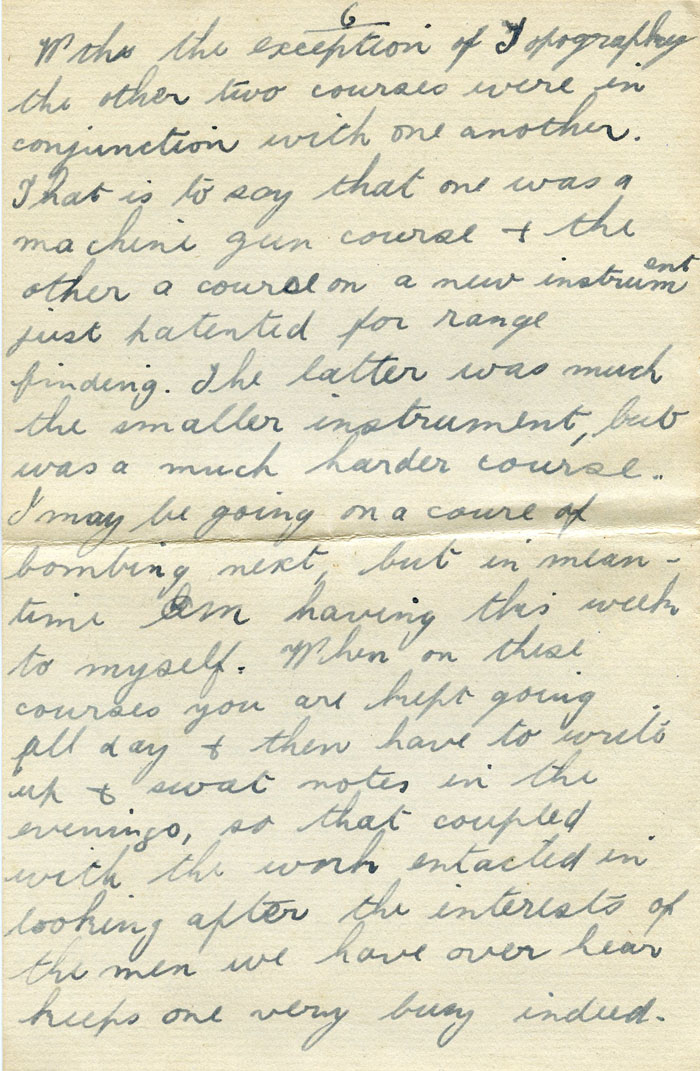 6
With the exception of Topography
the other two courses were in
conjunction with one another.
That is to say that one was a
machine gun course & the
other a course on a new instrument
just patented for range
finding. The latter was much
the smaller instrument, but
was a much harder course..
I may be going on a coure of
bombing next, but in mean-
time am having this week
to myself. When on these
courses you are kept going
all day & then have to write
up & swat notes in the
evenings, so that coupled
with the work entacted in
looking after the interests of
the men we have over hear
keeps one very busy indeed.